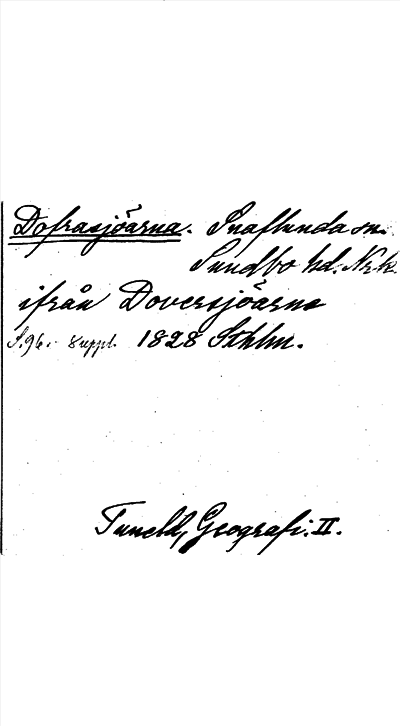 Dofrasjöarna. Snaflunda sn.
Sundbo hd. Nrk.
ifrån Doversjöarne
S. 96. 8 uppl. 1828 Sthlm.
Tuneld, Geografi. II.